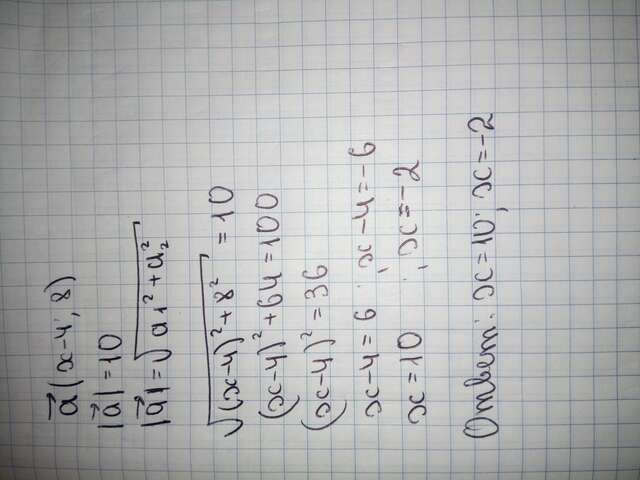 a⃗(x-4; 8)
|a⃗|=10
|a⃗|=√(a₁²+a₂²)
√((x-4)²+8²)=10
(x-4)²+64=100
(x-4)²=36
x-4=6 ; x-4=-6
x=10 ; x=-2
Ответ: x=10; x=-2